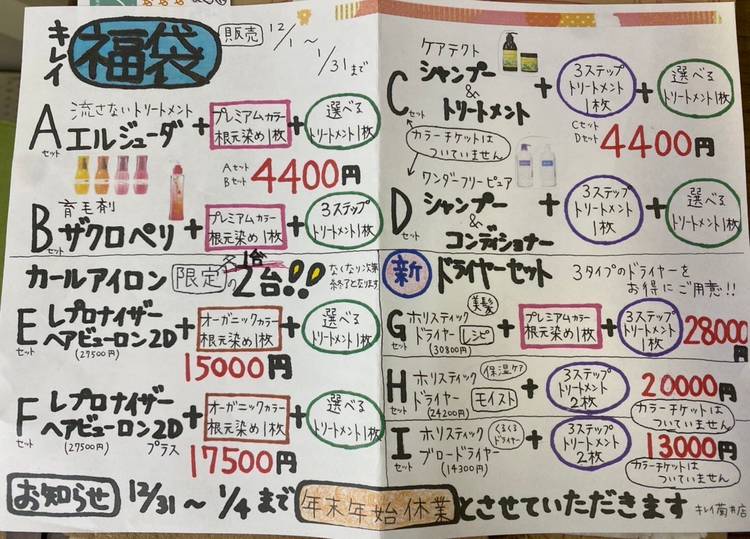 キレイ 福袋 販売 12/1～1/31まで
流さないトリートメント
Aセット エルジューダ + プレミアムカラー根元染め1枚 + 選べるトリートメント1枚
Aセット
Bセット 4400円
育毛剤
Bセット ザクロペリ + プレミアムカラー根元染め1枚 + 3ステップトリートメント1枚
ケアテクト
Cセット シャンプー&トリートメント + 3ステップトリートメント1枚 + 選べるトリートメント1枚
カラーチケットはついていません
Cセット
Dセット 4400円
ワンダーフリーピュア
Dセット シャンプー&コンディショナー + 3ステップトリートメント1枚 + 選べるトリートメント1枚
カールアイロン 限定各1台の2台!! なくなり次第終了となります
Eセット レプロナイザーヘアビューロン2D + オーガニックカラー根元染め1枚 + 選べるトリートメント1枚
(27500円)
15000円
Fセット レプロナイザーヘアビューロン2Dプラス + オーガニックカラー根元染め1枚 + 選べるトリートメント1枚
(27500円)
17500円
新 ドライヤーセット 3タイプのドライヤーをお得にご用意!!
Gセット ホリスティックドライヤー 美髪 レシピ + プレミアムカラー根元染め1枚 + 3ステップトリートメント1枚 28000円
(30800円)
Hセット ホリスティックドライヤー 保湿ケア モイスト + 3ステップトリートメント2枚 20000円
(24200円)
カラーチケットはついていません
Iセット ホリスティックブロードライヤー くるくるドライヤー + 3ステップトリートメント2枚 13000円
(14300円)
カラーチケットはついていません
お知らせ 12/31～1/4まで 年末年始休業とさせていただきます キレイ菊井店